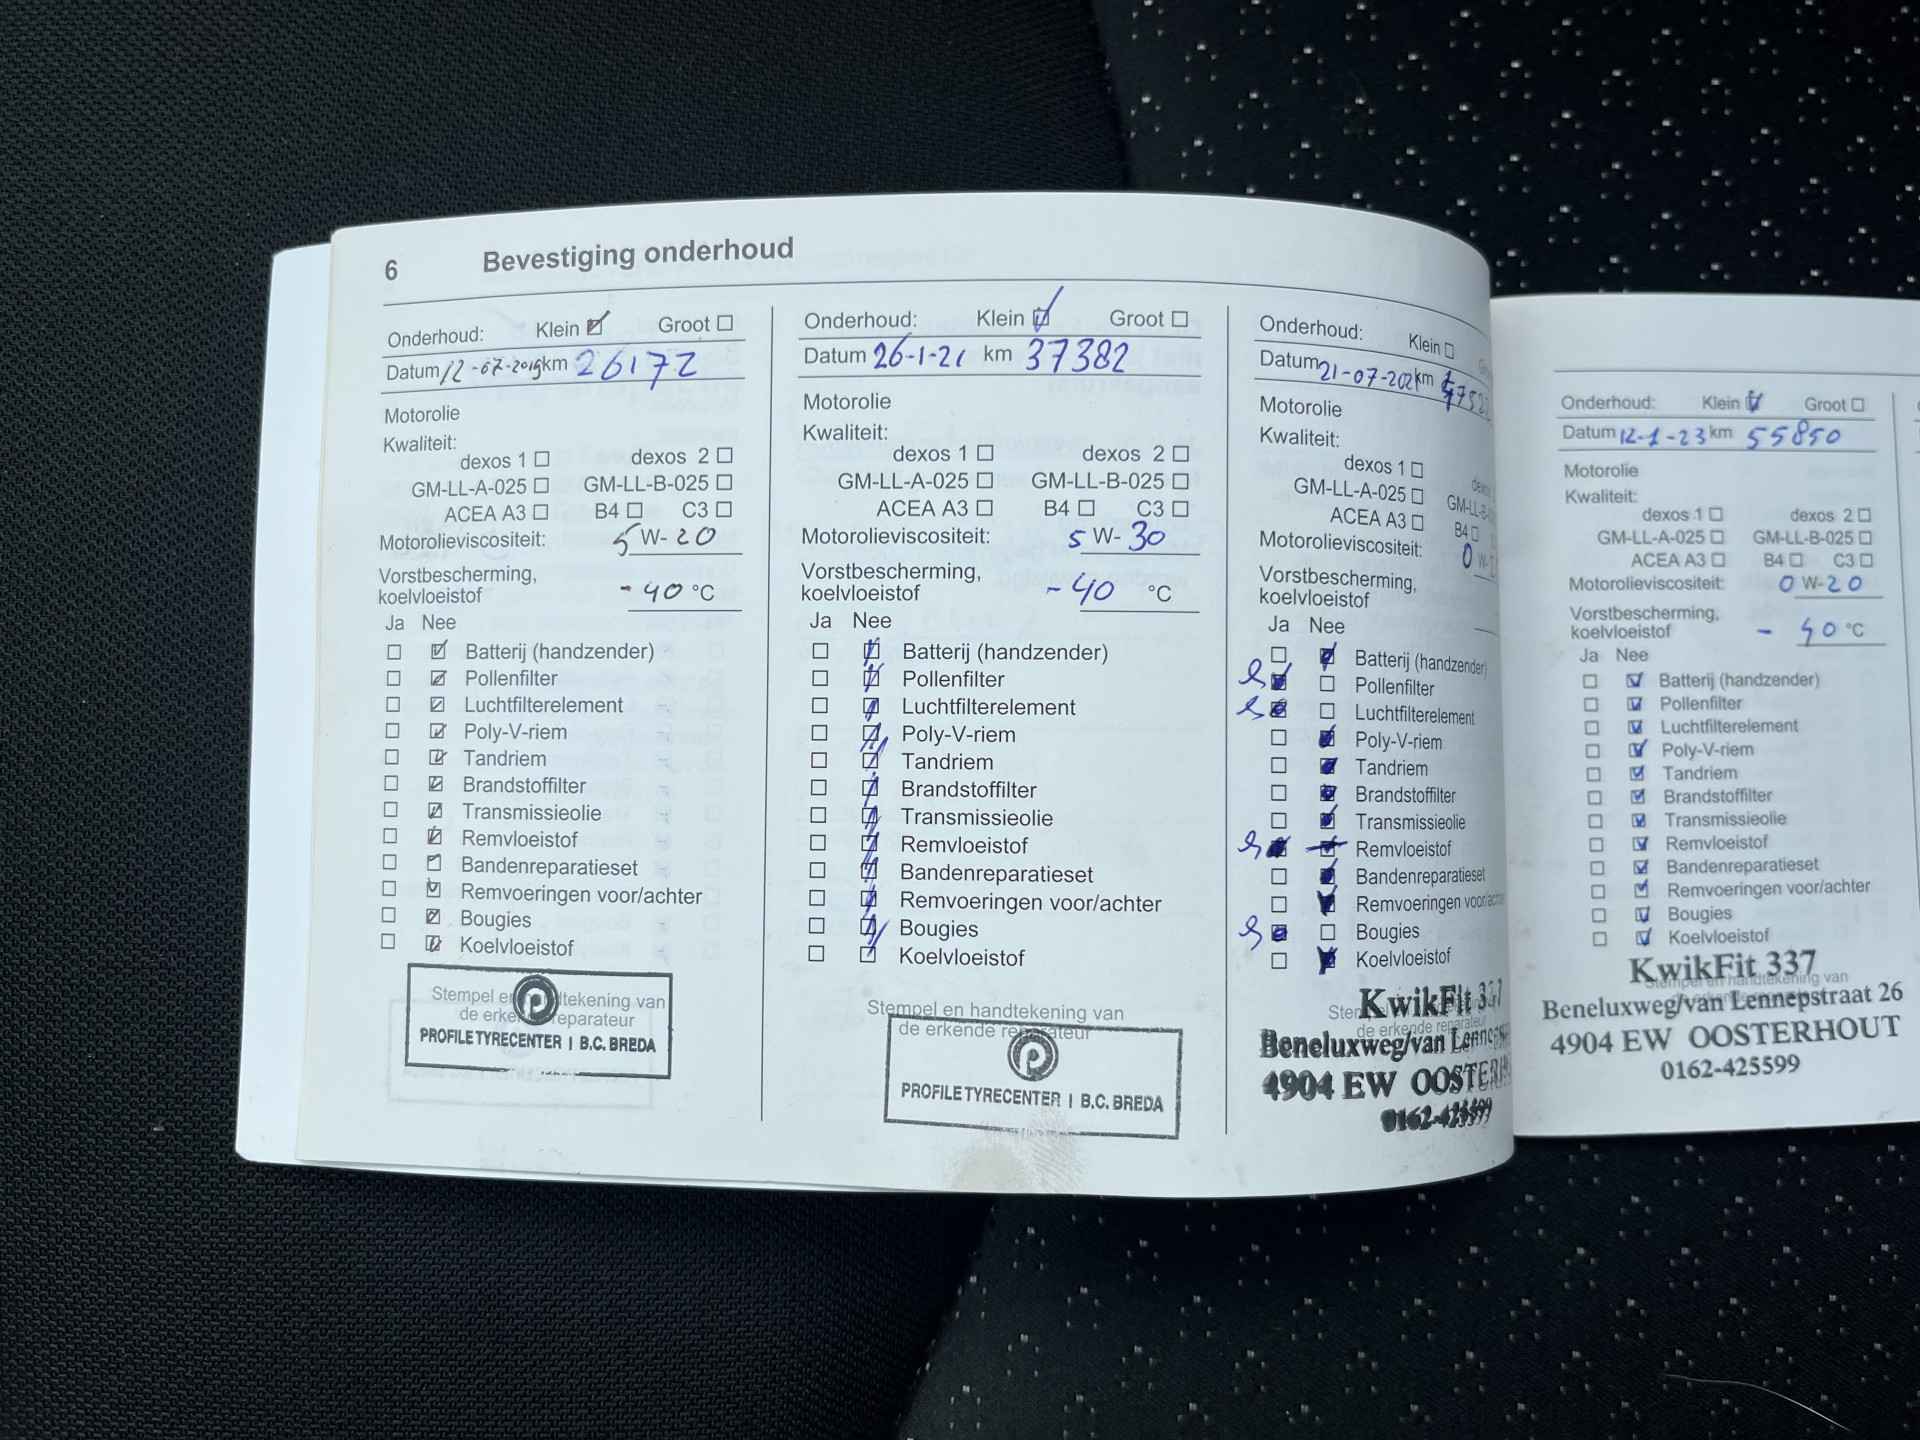 6 Bevestiging onderhoud
Onderhoud: Klein Groot
Datum 12-07-2019 km 26172
Motorolie
Kwaliteit:
dexos 1 dexos 2
GM-LL-A-025 GM-LL-B-025
ACEA A3 B4 C3
Motorolieviscositeit: 5 W-20
Vorstbescherming,
koelvloeistof -40 °C
Ja Nee
Batterij (handzender)
Pollenfilter
Luchtfilterelement
Poly-V-riem
Tandriem
Brandstoffilter
Transmissieolie
Remvloeistof
Bandenreparatieset
Remvoeringen voor/achter
Bougies
Koelvloeistof
Stempel en handtekening van
de erkende reparateur
PROFILE TYRECENTER | B.C. BREDA
Onderhoud: Klein Groot
Datum 26-1-21 km 37382
Motorolie
Kwaliteit:
dexos 1 dexos 2
GM-LL-A-025 GM-LL-B-025
ACEA A3 B4 C3
Motorolieviscositeit: 5 W-30
Vorstbescherming,
koelvloeistof -40 °C
Ja Nee
Batterij (handzender)
Pollenfilter
Luchtfilterelement
Poly-V-riem
Tandriem
Brandstoffilter
Transmissieolie
Remvloeistof
Bandenreparatieset
Remvoeringen voor/achter
Bougies
Koelvloeistof
Stempel en handtekening van
de erkende reparateur
PROFILE TYRECENTER | B.C. BREDA
Onderhoud: Klein
Datum 21-07-2021 km
Motorolie
Kwaliteit:
dexos 1
GM-LL-A-025 GM-LL-B
ACEA A3 B4
Motorolieviscositeit: 0 W-
Vorstbescherming,
koelvloeistof
Ja Nee
Batterij (handzender)
Pollenfilter
Luchtfilterelement
Poly-V-riem
Tandriem
Brandstoffilter
Transmissieolie
Remvloeistof
Bandenreparatieset
Remvoeringen voor/achter
Bougies
Koelvloeistof
KwikFit 337
de erkende reparateur
Beneluxweg/van Lenne
4904 EW OOSTERH
0162-425599
Onderhoud: Klein Groot
Datum 12-1-23 km 55850
Motorolie
Kwaliteit:
dexos 1 dexos 2
GM-LL-A-025 GM-LL-B-025
ACEA A3 B4 C3
Motorolieviscositeit: 0 W-20
Vorstbescherming,
koelvloeistof - 40 °C
Ja Nee
Batterij (handzender)
Pollenfilter
Luchtfilterelement
Poly-V-riem
Tandriem
Brandstoffilter
Transmissieolie
Remvloeistof
Bandenreparatieset
Remvoeringen voor/achter
Bougies
Koelvloeistof
KwikFit 337
Stempel en handtekening van
Beneluxweg/van Lennepstraat 26
4904 EW OOSTERHOUT
0162-425599